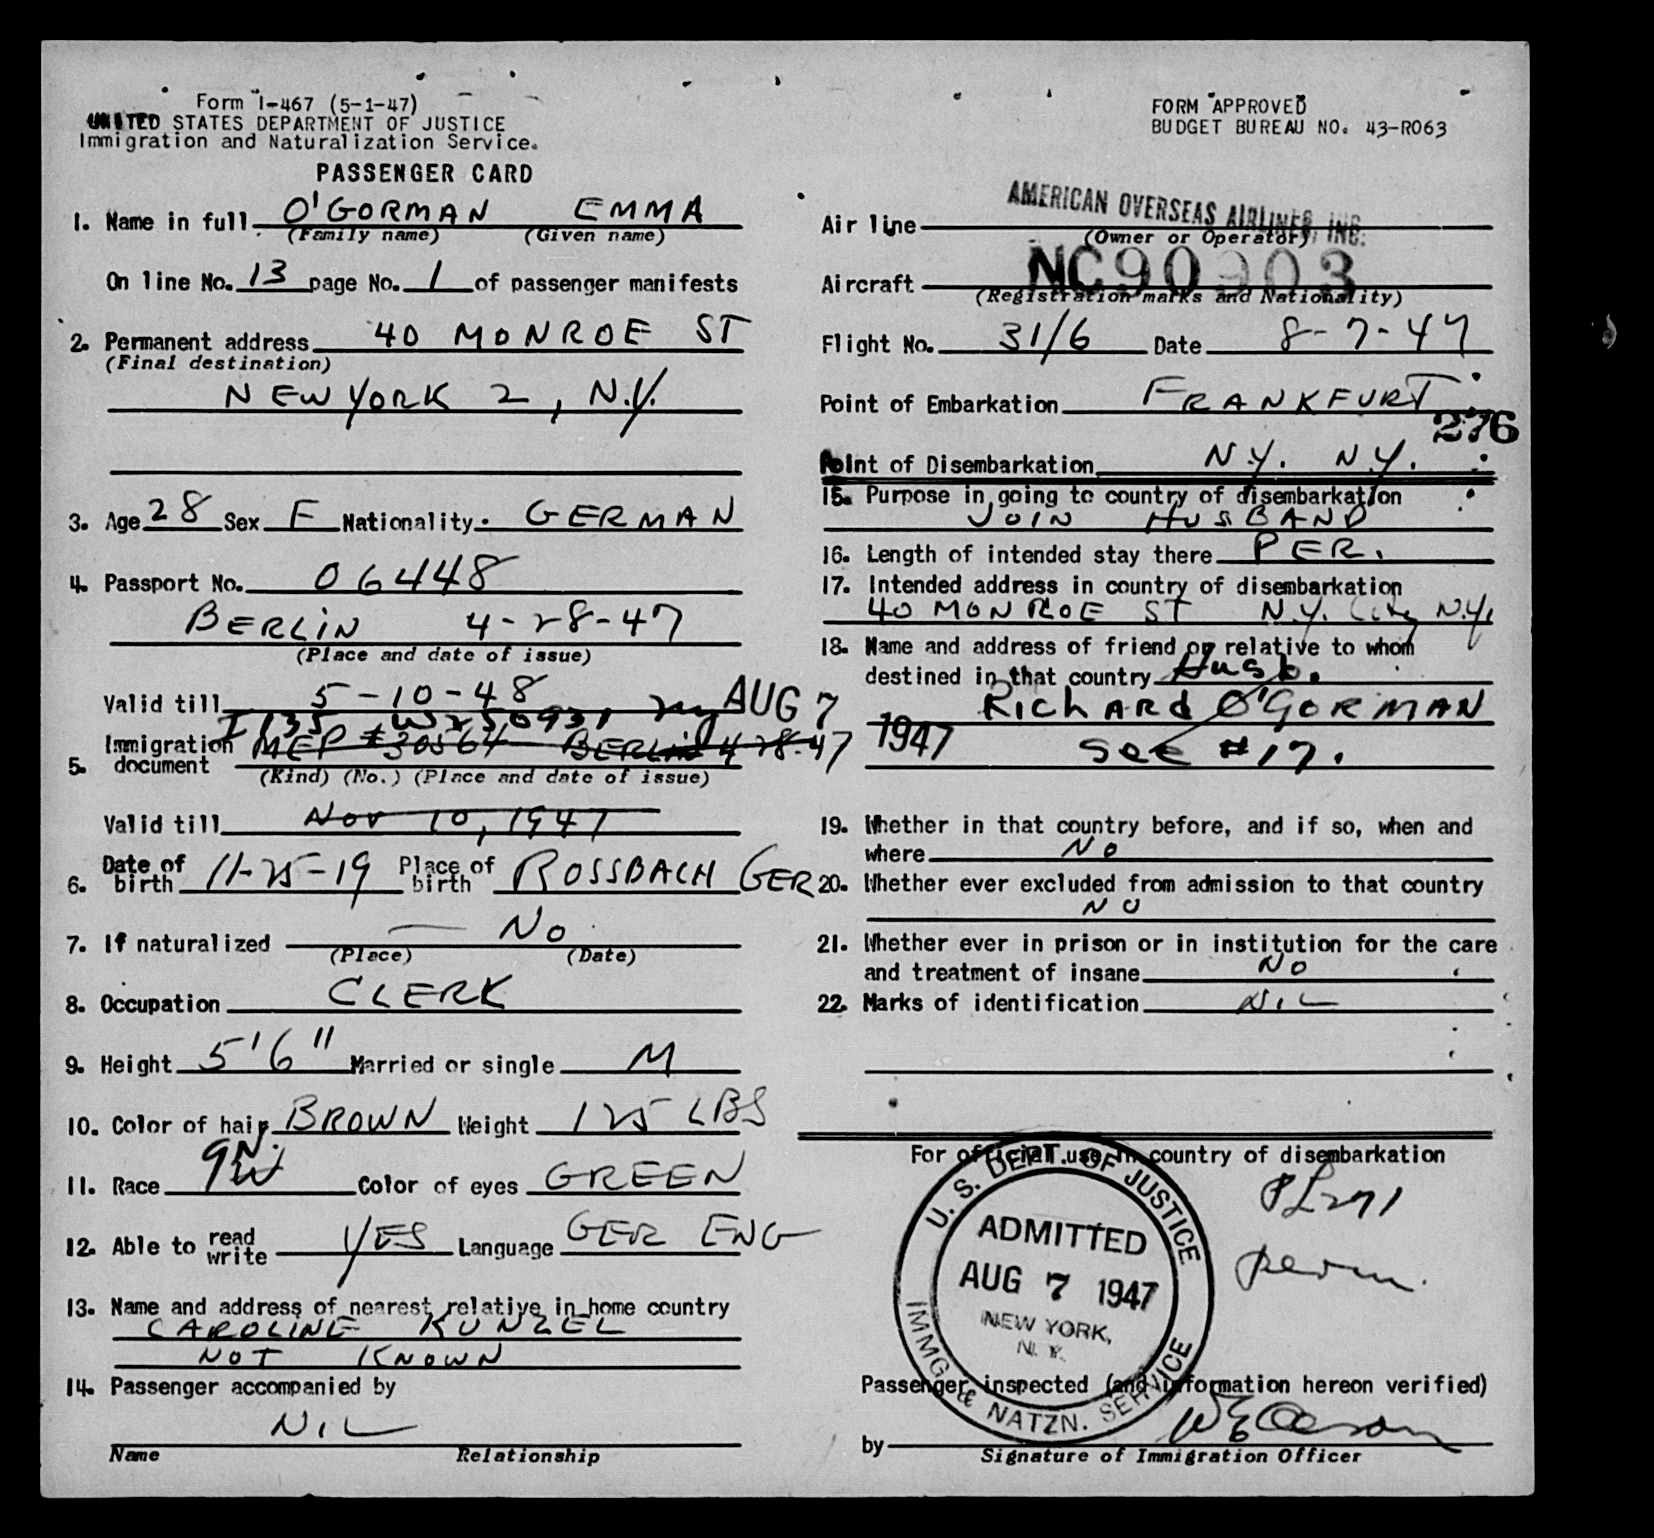 Form I-467 (5-1-47)
UNITED STATES DEPARTMENT OF JUSTICE
Immigration and Naturalization Service.
PASSENGER CARD
FORM APPROVED
BUDGET BUREAU NO. 43-R063
1. Name in full O'GORMAN EMMA
(Family name) (Given name)
On line No. 13 page No. 1 of passenger manifests
2. Permanent address 40 MONROE ST
(Final destination)
NEW YORK 2, N.Y.
3. Age 28 Sex F Nationality. GERMAN
4. Passport No. 06448
BERLIN 4-28-47
(Place and date of issue)
Valid till 5-10-48
I 135
AUG 7 1947
5. Immigration document MEP #30564 BERLIN 4-28-47
(Kind) (No.) (Place and date of issue)
Valid till Nov 10, 1947
6. Date of birth 11-25-19 Place of birth ROSSBACH GER
7. If naturalized — No
(Place) (Date)
8. Occupation CLERK
9. Height 5'6" Married or single M
10. Color of hair BROWN Weight 125 LBS
11. Race Color of eyes GREEN
12. Able to read write YES Language GER ENG
13. Name and address of nearest relative in home country
CAROLINE KUNZEL
NOT KNOWN
14. Passenger accompanied by
NIL
Name Relationship
Air line AMERICAN OVERSEAS AIRLINES, INC.
(Owner or Operator)
Aircraft NC90903
(Registration marks and Nationality)
Flight No. 31/6 Date 8-7-47
Point of Embarkation FRANKFURT
276
Point of Disembarkation N.Y. N.Y.
15. Purpose in going to country of disembarkation
JOIN HUSBAND
16. Length of intended stay there PER.
17. Intended address in country of disembarkation
40 MONROE ST N.Y. City N.Y.
18. Name and address of friend or relative to whom
destined in that country Husb.
RICHARd O'GORMAN
See #17.
19. Whether in that country before, and if so, when and
where NO
20. Whether ever excluded from admission to that country
NO
21. Whether ever in prison or in institution for the care
and treatment of insane NO
22. Marks of identification NIL
For official use in country of disembarkation
U. S. DEPT. OF JUSTICE
ADMITTED
AUG 7 1947
NEW YORK,
N. Y.
IMMG. & NATZN. SERVICE
PL271
perm.
Passenger inspected (and information hereon verified)
by
Signature of Immigration Officer